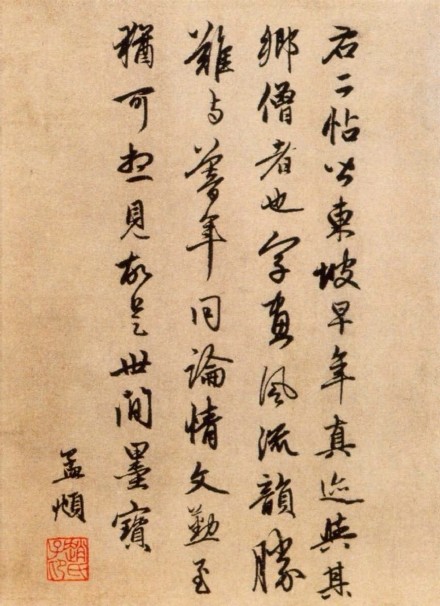 右二帖皆東坡早年真迹與其
鄉僧者也字畫風流韻勝
難與暮年同論情文勤至
猶可想見故是世間墨寶
孟頫
趙氏子昂